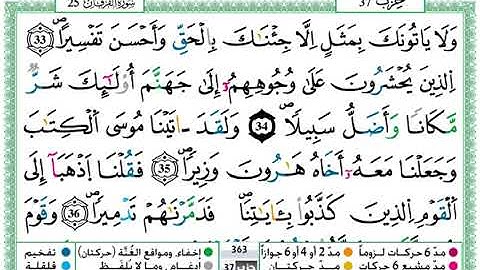 حزب 37 سورة الفرقان 25
وَلَا يَاتُونَكَ بِمَثَلٍ اِلَّا جِئْنَٰكَ بِالْحَقِّ وَأَحْسَنَ تَفْسِيرًا 33
اِ۬لذِينَ يُحْشَرُونَ عَلَىٰ وُجُوهِهِمُۥٓ إِلَىٰ جَهَنَّمَ أُوْلَٰٓئِكَ شَرٌّ
مَّكَانًا وَأَضَلُّ سَبِيلًا 34 وَلَقَدَ اٰتَيْنَا مُوسَى اَ۬لْكِتَٰبَ
وَجَعَلْنَا مَعَهُۥٓ أَخَاهُ هَٰرُونَ وَزِيرًا 35 فَقُلْنَا اَ۪ذْهَبَآ إِلَى
اَ۬لْقَوْمِ اِ۬لذِينَ كَذَّبُواْ بِـَٔايَٰتِنَا فَدَمَّرْنَٰهُمْ تَدْمِيرًا 36 وَقَوْمَ
مدّ 6 حركات لزوماً مدّ 2 أو 4 أو 6 جوازاً 363 إخفاء، ومواقع الغُنَّة (حركتان) تفخيم
مدّ مشبع 6 حركات مدّ حركتان 37 إدغام، وما لا يُلفظ قلقلة